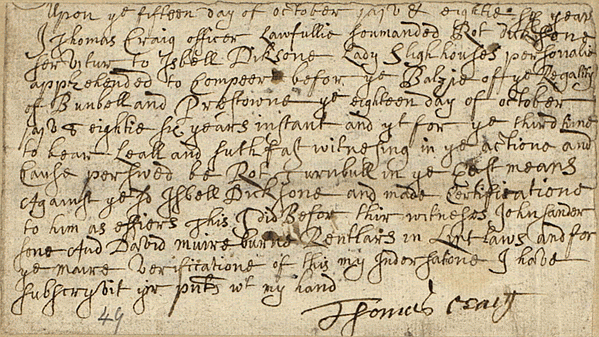 Upon ye fifteen day of october jajvjc eightie six years
I Thomas Craig officer Lawfullie sommanded Rot Dicksone
servitur to Isbell Diksone Lady Slighhouses personalie
apprehended to Compeer befor ye Balzie off ye Regality
of Bunkell and Prestowne ye eighteen day of october
jajvjc eightie six years instant and yt for ye third time
to bear Leall and suthfast witnesing in ye actione and
Cause persewed be Rot Turnbull in ye best means
Against ye sd Isbell Dicksone and made Certificatione
to him as effiers This I did Befor thir witneses John sander
sone And David muire burne Rentlars in Lint Laws and for
ye maire verificatione of this my Indorsatone I have
subscryvit yr pnts wt my hand
Thomas Craig
49